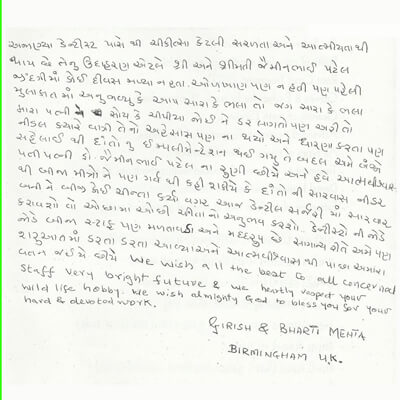 અજાણ્યા ડેન્ટીસ્ટ પાસે થી ચીકીત્સા કેટલી સરળતા અને આત્મીયતા થી
થાય છે તેનું ઉદાહરણ એટલે શ્રી અને શ્રીમતી જૈમીનભાઈ પટેલ
જીંદગીમાં કોઈ દીવસ મળ્યા ન હતા. ઓળખાણ પણ ન હતી પણ પહેલી
મુલાકાત માં અનુભવ્યુ કે આપ સારા કે ભલા તો જગ સારા કે ભલા
મારા પત્ની ને સોય કે ચીપીયા જોઈ ને ડર લાગતો પણ અહીં તો
નીડલ ક્યારે વાગી તેનો અહેસાસ પણ ના થયો અને ધારણા કરતા પણ
સહેલાઈ થી દાંતો નુ ઈમ્પ્લીમેન્ટેશન થઈ ગયુ તે બદલ અમે બંન્ને
પતી પત્ની ડો. જૈમીનભાઈ પટેલ ના રુણી છીએ અને હવે આત્મવિશ્વાસ
થી બીજા મીત્રો ને પણ ગર્વ થી કહી શકીયે કે દાંતો ની સારવાર નીડર
બની ને બીજી કોઈ ચીંતા કર્યા વગર આજ ડેન્ટીલ સર્જરી માં સારવાર
કરાવશો તો ઓછામા ઓછી ચીંતા નો અનુભવ કરશો. ડેન્ટીસ્ટો ની જોડે
જોડે બીજા સ્ટાફ પણ મળતાવડા અને મદદરૂપ છે સામાન્ય રીતે અમે પણ
શરૂઆતમાં ડરતા ડરતા આવ્યા અને આત્મવીશ્વાસ થી પાછા અમારા
વતન જઈએ છીયે We wish all the best to all concerned
staff very bright future & we heartly respect your
wild life hobby. We wish almighty God to bless you for your
hard & devoted work.
GIRISH & BHARTI MEHTA
BIRMINGHAM U.K.